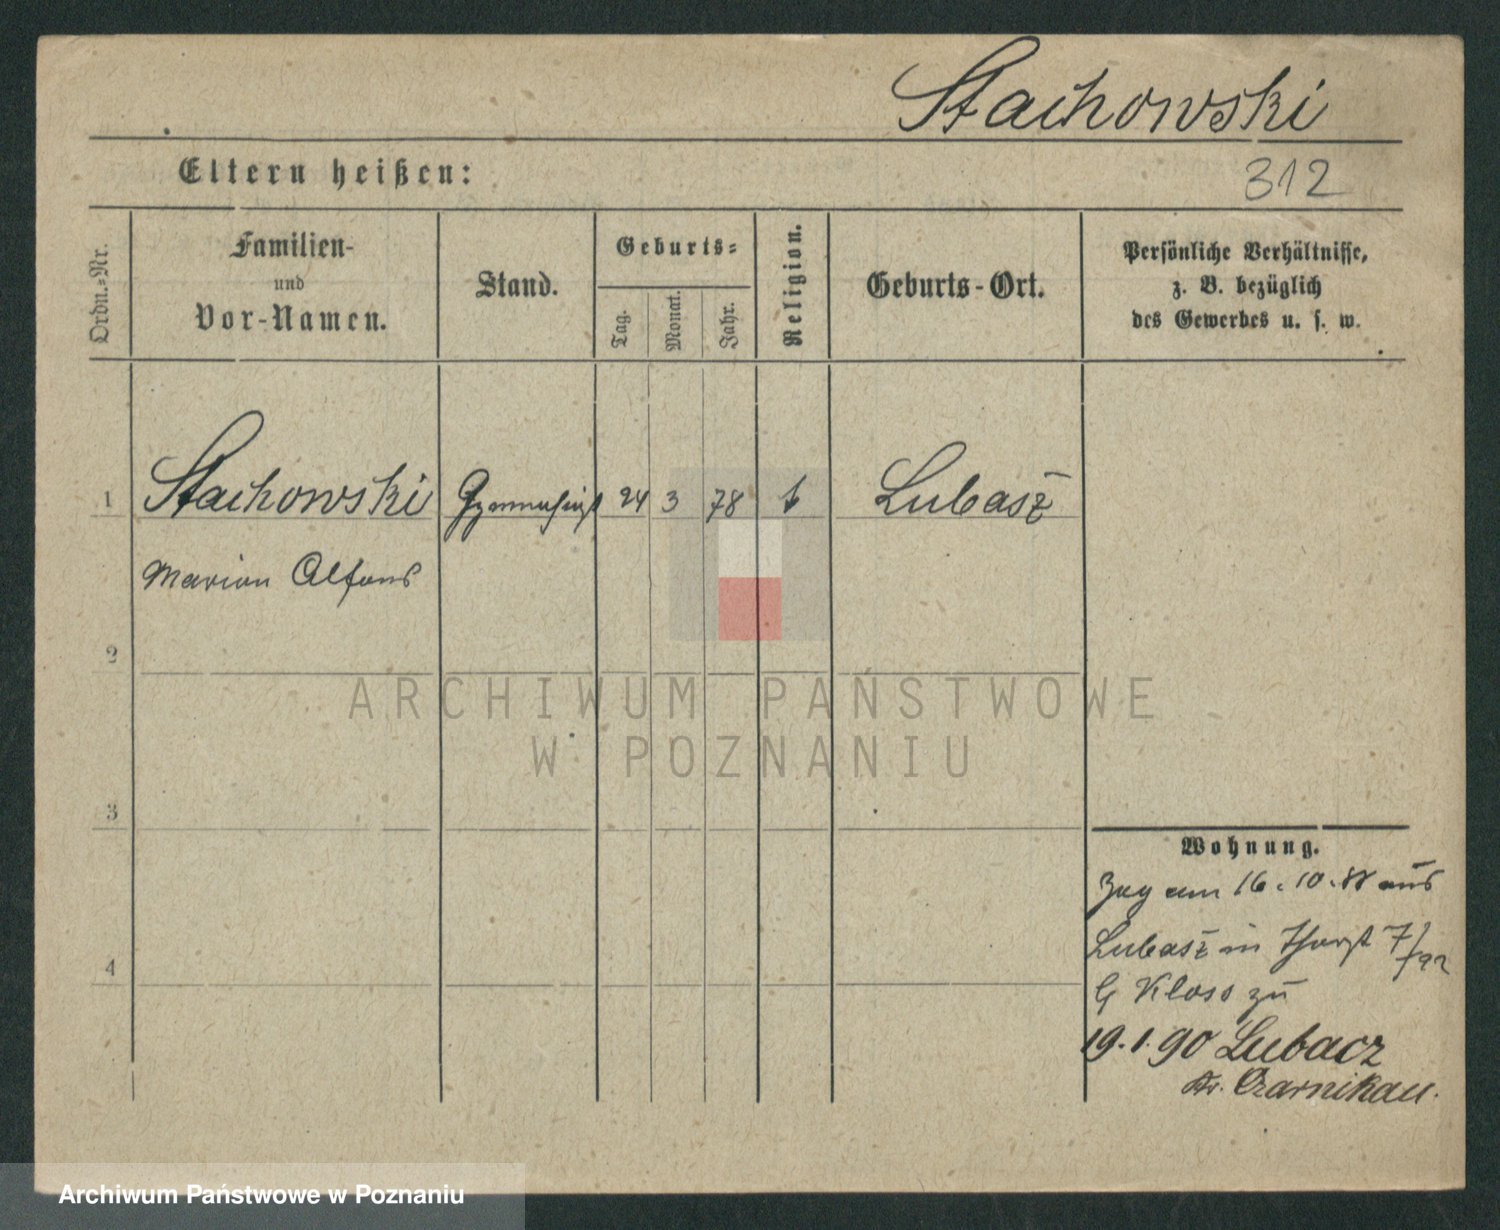 Stachowski
Eltern heißen:
312
Ordn.-Nr.
Familien-
und
Vor-Namen.
Stand.
Geburts-
Tag.
Monat.
Jahr.
Religion.
Geburts-Ort.
Persönliche Verhältnisse,
z. B. bezüglich
des Gewerbes u. s. w.
1 Stachowski Gymnasiast 24 3 78 Lubasz
Marion Alfons
2
ARCHIWUM PAŃSTWOWE
W POZNANIU
3
Wohnung.
Zug am 16.10.88 aus
Lubasz in
4
Kloss zu
19.1.90 Lubacz
Kr. Czarnikau.
Archiwum Państwowe w Poznaniu